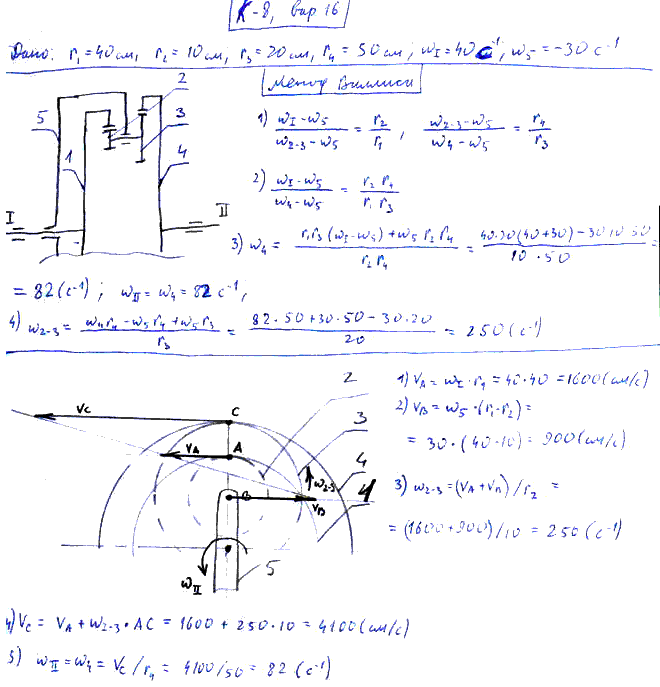 К-8, вар 16
Дано: r₁=40см, r₂=10см, r₃=20см, r₄=50см; ω_I=40 с⁻¹, ω₅=-30 с⁻¹
Метод Виллиса
1) (ω_I-ω₅)/(ω₂₋₃-ω₅) = r₂/r₁, (ω₂₋₃-ω₅)/(ω₄-ω₅) = r₄/r₃
2) (ω_I-ω₅)/(ω₄-ω₅) = (r₂ r₄)/(r₁ r₃)
3) ω₄ = (r₁r₃(ω_I-ω₅)+ω₅ r₂ r₄)/(r₂ r₄) = (40·20(40+30)-30·10·50)/(10·50) =
= 82 (с⁻¹); ω_II=ω₄=82 с⁻¹;
4) ω₂₋₃ = (ω₄r₄-ω₅r₄+ω₅r₃)/r₃ = (82·50+30·50-30·20)/20 = 250 (с⁻¹)
5
1
2
3
4
I
II
1) V_A = ω_I·r₁ = 40·40 = 1600 (см/с)
2) V_B = ω₅·(r₁-r₂) =
= 30·(40-10) = 900 (см/с)
3) ω₂₋₃ = (V_A+V_B)/r₂ =
= (1600+900)/10 = 250 (с⁻¹)
V_C
C
V_A
A
B
V_B
ω₂₋₃
ω_II
2
3
4
4
5
4) V_C = V_A+ω₂₋₃·AC = 1600+250·10 = 4100 (см/с)
5) ω_II=ω₄ = V_C/r₄ = 4100/50 = 82 (с⁻¹)